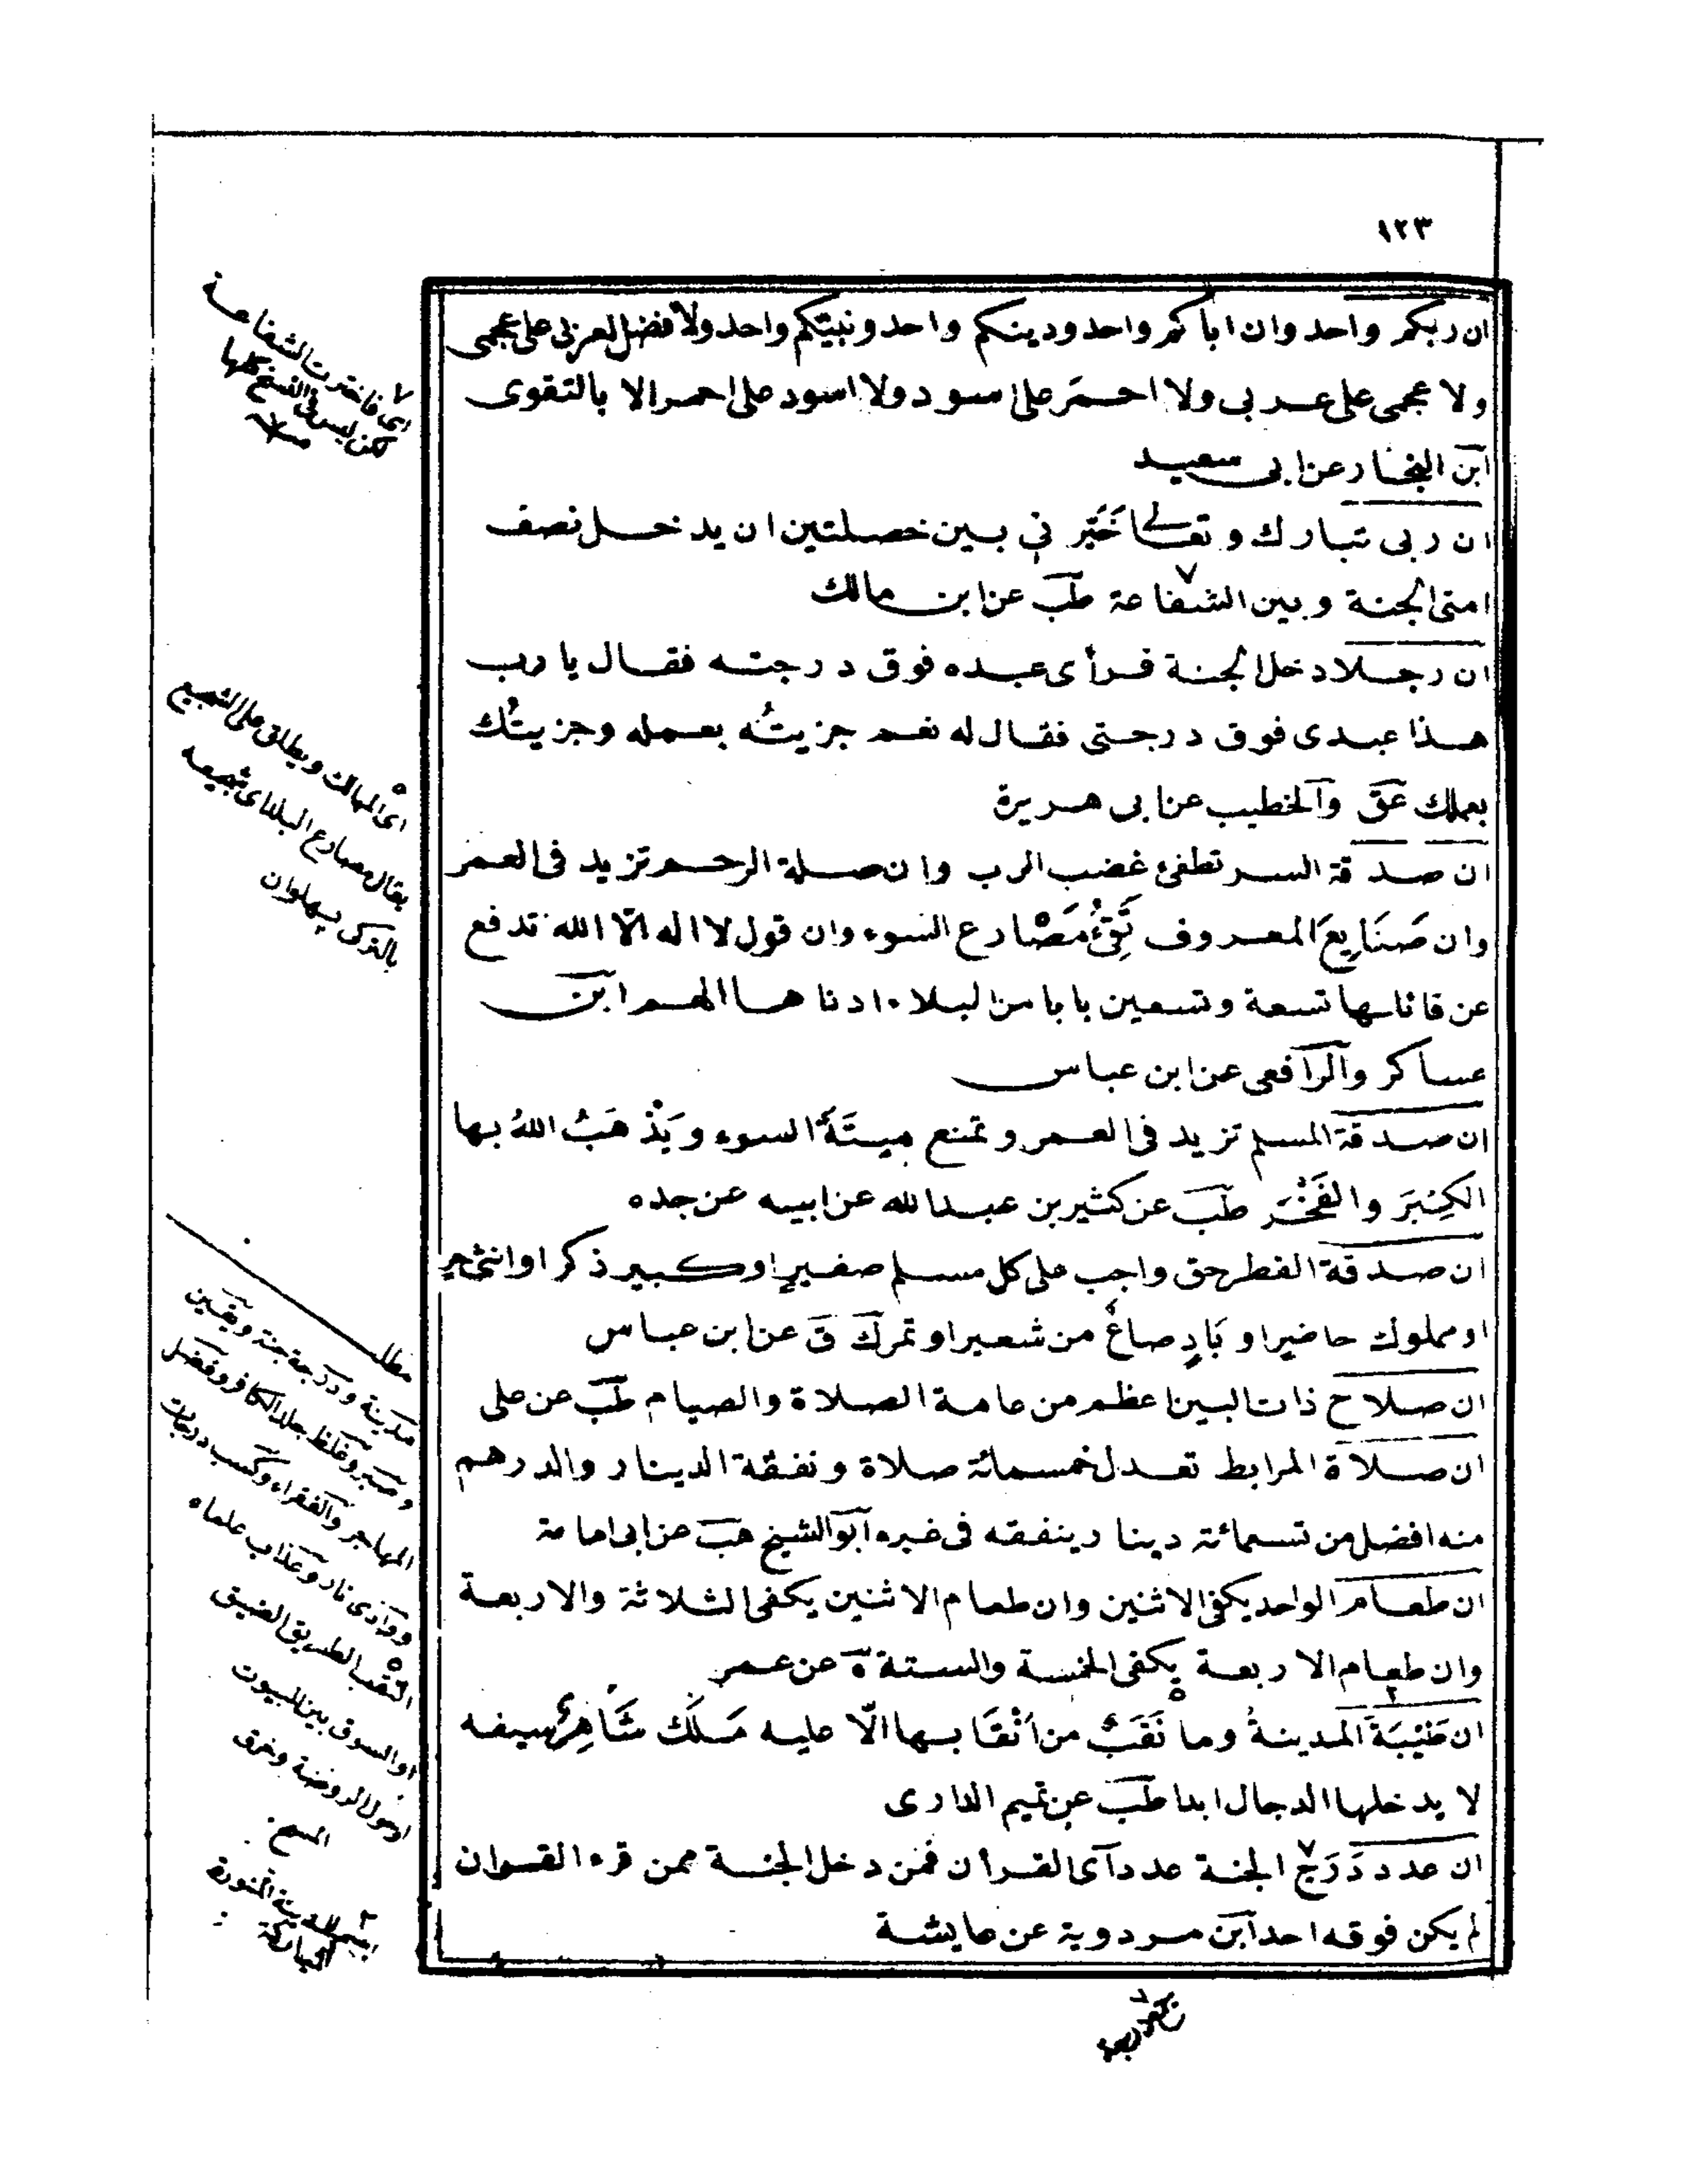 ١٢٣
ان ربكم واحد وان اباكم واحد ودينكم واحد ونبيكم واحد ولا فضل لعربى على عجمى
ولا عجمى على عربى ولا احمَر على اسود ولا اسود على احمر الا بالتقوى
ابن النجار عن ابى سعيد
ان ربى تبارك وتعالى خَيَّرنى بين خصلتين ان يدخل نصف
امتى الجنة وبين الشفاعة طب عن ابن مالك
ان رجلا دخل الجنة فرأى عبده فوق درجته فقال يا رب
هذا عبدى فوق درجتى فقال له نعم جزيتُه بعمله وجزيتُك
بعملك عق والخطيب عن ابى هريرة
ان صدقة السر تطفئ غضب الرب وان صلة الرحم تزيد فى العمر
وان صَنَايِعَ المعروف تَقِى مَصَارع السوء وان قول لا اله الّا الله تدفع
عن قائلها تسعة وتسعين بابا من البلاء ادناها الهم ابن
عساكر والرافعى عن ابن عباس
ان صدقة المسلم تزيد فى العمر وتمنع مِيتَةَ السوء ويَذْهَبُ اللهُ بها
الكِبْرَ والفَخْرَ طب عن كثير بن عبد الله عن ابيه عن جده
ان صدقة الفطر حق واجب على كل مسلم صغيرٍ او كبير ذكر او انثى حر
او مملوك حاضرٍ او بَادٍ صاعٌ من شعير او تمر ك ق عن ابن عباس
ان صلاح ذات البين اعظم من عامة الصلاة والصيام طب عن على
ان صلاة المرابط تعدل خمسمائة صلاة ونفقة الدينار والدرهم
منه افضل من تسمائة دينار ينفقه فى غيره ابو الشيخ هب عن ابى امامة
ان طعام الواحد يكفى الاثنين وان طعام الاثنين يكفى الثلاثة والاربعة
وان طعام الاربعة يكفى الخمسة والستة ه عن عمر
ان طَيْبَةَ المدينةُ وما نَقَبٌ من اَنْقَابها الّا عليه مَلَك شَاهِرٌ سيفه
لا يدخلها الدجال ابدا طب عن تميم الدارى
ان عدد دَرَجِ الجنة عدد آى القرأن فمن دخل الجنة ممن قرء القران
لم يكن فوقه احد ابن مردوية عن عايشة
اى فاخترت الشفاعة
لكن ليس فى النسخ كلها
اى المهالك ويطلق على الشجيع
يقال مصارع البلد اى شجيعه
بالتركى پهلوان
مطلب
مدينة ودرجة جنة ويقين
وصبر وغلظ جلد الكافر وفضل
المهاجر والفقراء وكسب درجات
ووادى نار وعذاب علماء
النقب الطريق الضيق
او السوق بين البيوت
اسم للمدينة المنورة
المباركة